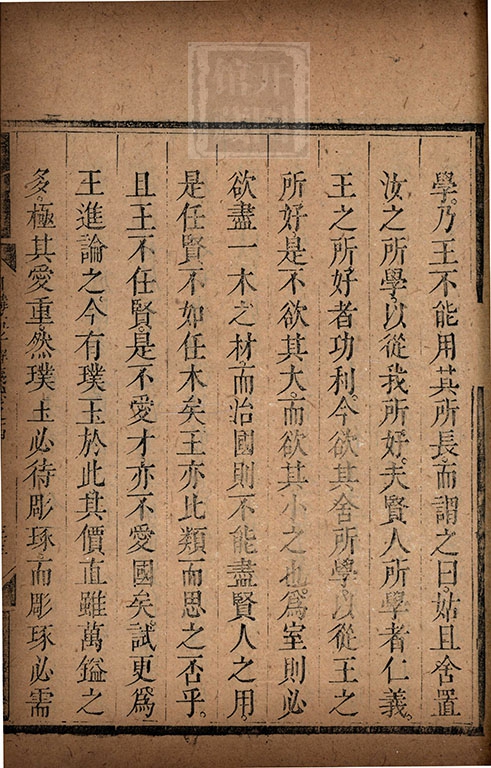 學乃王不能用其所長而謂之曰姑且舍置
汝之所學以從我所好夫賢人所學者仁義
王之所好者功利今欲其舍所學以從王之
所好是不欲其大而欲其小之也為室則必
欲盡一木之材而治國則不能盡賢人之用
是任賢不如任木矣王亦比類而思之否乎
且王不任賢是不愛才亦不愛國矣試更為
王進論之今有璞玉於此其價直雖萬鎰之
多極其愛重然璞玉必待彫琢而彫琢必需